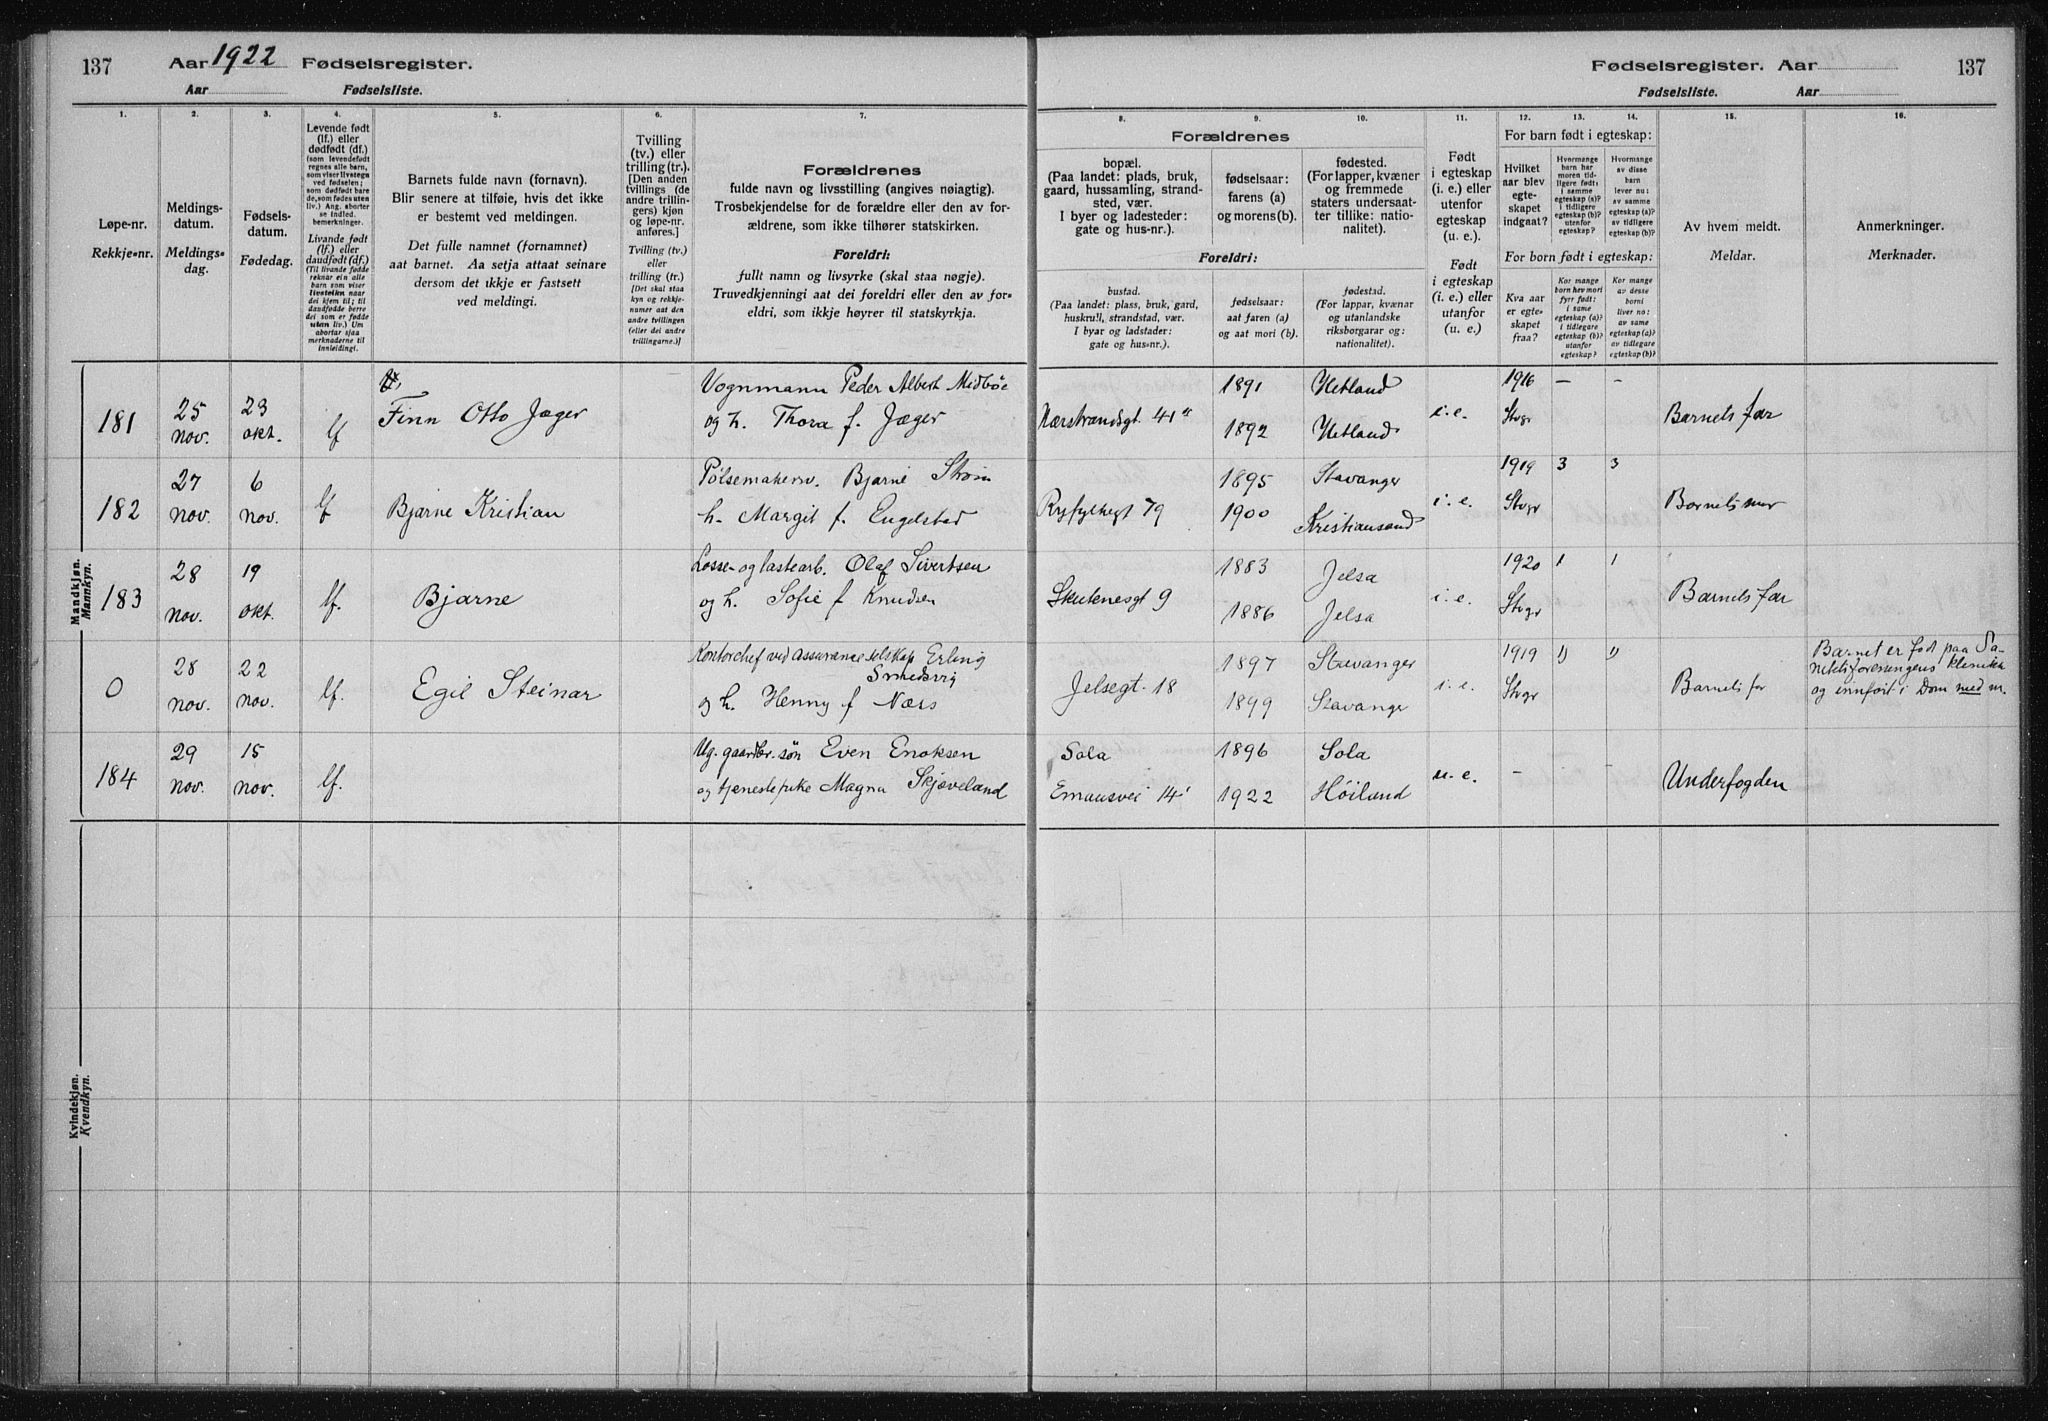 137 Aar 1922 Fødselsregister.
Aar Fødselsliste.
Fødselsregister. Aar 137
Fødselsliste. Aar
1.
Løpe-nr.
Rekkje-nr.
2.
Meldings-
datum.
Meldings-
dag.
3.
Fødsels-
datum.
Fødedag.
4.
Levende født
(lf.) eller
dødfødt (df.)
(som levendefødt
regnes alle barn,
som viser livstegn
ved fødselen;
som dødfødt bare
de, som fødes uten
liv.) Ang. aborter
se indled.
bemerkninger.
Livande født
(lf.) eller
daudfødt (df.)
(Til livande fødde
reknar ein alle
barn som viser
livsteikn naar
dei kjem til; til
daudfødde berre
dei som er fødde
utan liv.) Um
abortar sjaa
merknaderne til
innleidingi.
5.
Barnets fulde navn (fornavn).
Blir senere at tilføie, hvis det ikke
er bestemt ved meldingen.
Det fulle namnet (fornamnet)
aat barnet. Aa setja attaat seinare
dersom det ikkje er fastsett
ved meldingi.
6.
Tvilling
(tv.) eller
trilling (tr.).
[Den anden
tvillings (de
andre trillin-
gers) kjøn
og løpe-nr.
anføres.]
Tvilling (tv.)
eller
trilling (tr.)
[Det skal staa
kyn og rekkje-
numer aat den
andre tvillingen
(eller dei andre
trillingarne.)]
7.
Forældrenes
fulde navn og livsstilling (angives nøiagtig).
Trosbekjendelse for de forældre eller den av for-
ældrene, som ikke tilhører statskirken.
Foreldri:
fullt namn og livsyrke (skal staa nøgje).
Truvedkjenningi aat dei foreldri eller den av for-
eldri, som ikkje høyrer til statskyrkja.
Forældrenes
8.
bopæl.
(Paa landet: plads, bruk,
gaard, hussamling, strand-
sted, vær.
I byer og ladesteder:
gate og hus-nr.).
Foreldri:
bustad.
(Paa landet: plass, bruk, gard,
huskrull, strandstad, vær.
I byar og ladstader:
gate og hus-nr.).
9.
fødselsaar:
farens (a)
og morens (b).
fødselsaar:
aat faren (a)
og aat mori (b).
10.
fødested.
(For lapper, kvæner
og fremmede
staters undersaat-
ter tillike: natio-
nalitet).
fødestad.
(For lappar, kvænar
og utanlandske
riksborgarar og:
nationalitet).
11.
Født
i egteskap
(i. e.) eller
utenfor
egteskap
(u. e.).
Født
i egteskap
(i. e.) eller
utanfor
(u. e.).
For barn født i egteskap:
12.
Hvilket
aar blev
egte-
skapet
indgaat?
13.
Hvormange
barn har
moren tid-
ligere født:
i samme
egteskap (a)?
i tidligere
egteskap (b)?
utenfor
egteskap?
14.
Hvormange
av disse
barn
lever nu:
av samme
egteskap (a)?
av tidligere
egteskap (b)?
For born født i egteskap:
Kva aar
er egte-
skapet
fraa?
Kor mange
born hev mori
fyrr født:
i same
egteskap (a)?
i tidlegare
egteskap (b)?
utanfor
egteskap?
Kor mange
av desse
borni
liver no:
av same
egteskap (a)?
av tidlegare
egteskap (b)?
15.
Av hvem meldt.
Meldar.
16.
Anmerkninger.
Merknader.
Mandkjøn.
Mannkyn.
181
25
nov.
23
okt.
lf
Finn Otto Jæger
Vognmann Peder Albert Midbøe
og h. Thora f. Jæger
Nærstrandsgt. 41
1891
1892
Hetland
Hetland
i.e.
1916 – –
Stvgr
Barnets far
182
27
nov.
6
nov.
lf
Bjarne Kristian
Pølsemakersv. Bjarne Strøm
h. Margit f. Engelstad
Ryfylkegt 79
1895
1900
Stavanger
Kristiansand
i.e.
1919 3 3
Stvgr
Barnets mor
183
28
nov.
19
okt.
lf.
Bjarne
Losse- og lastearb. Olaf Sivertsen
og h. Sofie f Knudsen
Skutenesgt 9
1883
1886
Jelsa
Jelsa
i.e.
1920 1 1
Stvgr
Barnets far
0
28
nov.
22
nov.
lf.
Egil Steinar
Kontorchef ved assuranceselskap Erling
Smedsvig
og h. Henny f Næss
Jelsegt. 18
1897
1899
Stavanger
Stavanger
i.e.
1919 1) 1)
Stvgr
Barnets far
Barnet er født paa Sa-
nitetsforeningens klinikk
og innført i Dom med nr.
184
29
nov.
15
nov.
lf.
Ug. gaardbr. søn Even Enoksen
og tjenestepike Magna Skjæveland
Sola
Emausvei 14
1896
1922
Sola
Høiland
u.e.
– – –
Underfogden
Kvindekjøn.
Kvendkyn.